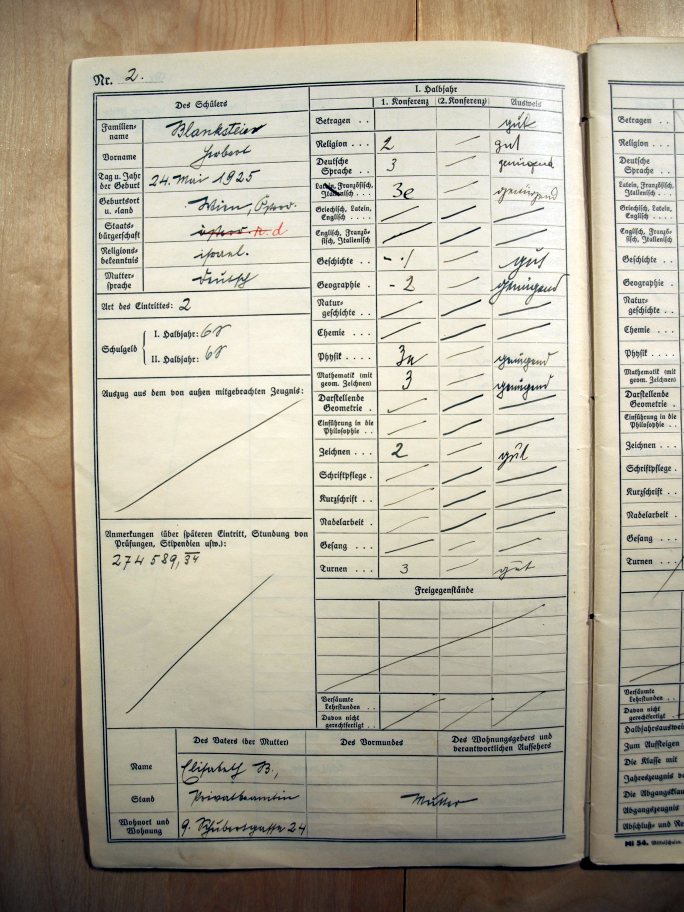 Nr. 2.
Des Schülers
Familien-
name
Blankstein
Vorname
Herbert
Tag u. Jahr
der Geburt
24. Mai 1925
Geburtsort
u. -land
Wien, Österr.
Staats-
bürgerschaft
österr. n. d
Religions-
bekenntnis
israel.
Mutter-
sprache
deutsch
Art des Eintrittes: 2
Schulgeld
I. Halbjahr: 68
II. Halbjahr: 68
Auszug aus dem von außen mitgebrachten Zeugnis:
Anmerkungen (über späteren Eintritt, Stundung von
Prüfungen, Stipendien usw.):
274 589, 34
I. Halbjahr
1. Konferenz (2. Konferenz) Ausweis
Betragen . . gut
Religion . . 2 gut
Deutsche
Sprache . . 3 genügend
Latein, Französisch,
Italienisch . . 3e genügend
Griechisch, Latein,
Englisch . . . .
Englisch, Franzö-
sisch, Italienisch
Geschichte . . - 1 gut
Geographie . - 2 genügend
Natur-
geschichte . .
Chemie . . .
Physik . . . . 3a genügend
Mathematik (mit
geom. Zeichnen) 3 genügend
Darstellende
Geometrie .
Einführung in die
Philosophie . .
Zeichnen . . . 2 gut
Schriftpflege .
Kurzschrift . .
Nadelarbeit .
Gesang . . .
Turnen . . . 3 gut
Freigegenstände
Versäumte
Lehrstunden . .
Davon nicht
gerechtfertigt . .
Des Vaters (der Mutter)
Des Vormundes
Des Wohnungsgebers und
verantwortlichen Aufsehers
Name
Elisabeth B.,
Stand
Privatbeamtin
Mutter
Wohnort und
Wohnung
9. Schubertgasse 24
Betragen . .
Religion . .
Deutsche
Sprache . .
Latein, Französisch,
Italienisch . .
Griechisch, Latein,
Englisch . . . .
Englisch, Franzö-
sisch, Italienisch
Geschichte . .
Geographie .
Natur-
geschichte . .
Chemie . . .
Physik . . . .
Mathematik (mit
geom. Zeichnen)
Darstellende
Geometrie .
Einführung in die
Philosophie . .
Zeichnen . . .
Schriftpflege .
Kurzschrift . .
Nadelarbeit .
Gesang . . .
Turnen . . .
Versäumte
Lehrstunden . .
Davon nicht
gerechtfertigt . .
Halbjahrsausweis
Zum Aufsteigen
Die Klasse mit
Jahreszeugnis
Die Abgangsklau
Abgangszeugnis
Abschluß- und Re
Ml 54. Mittelschulen.